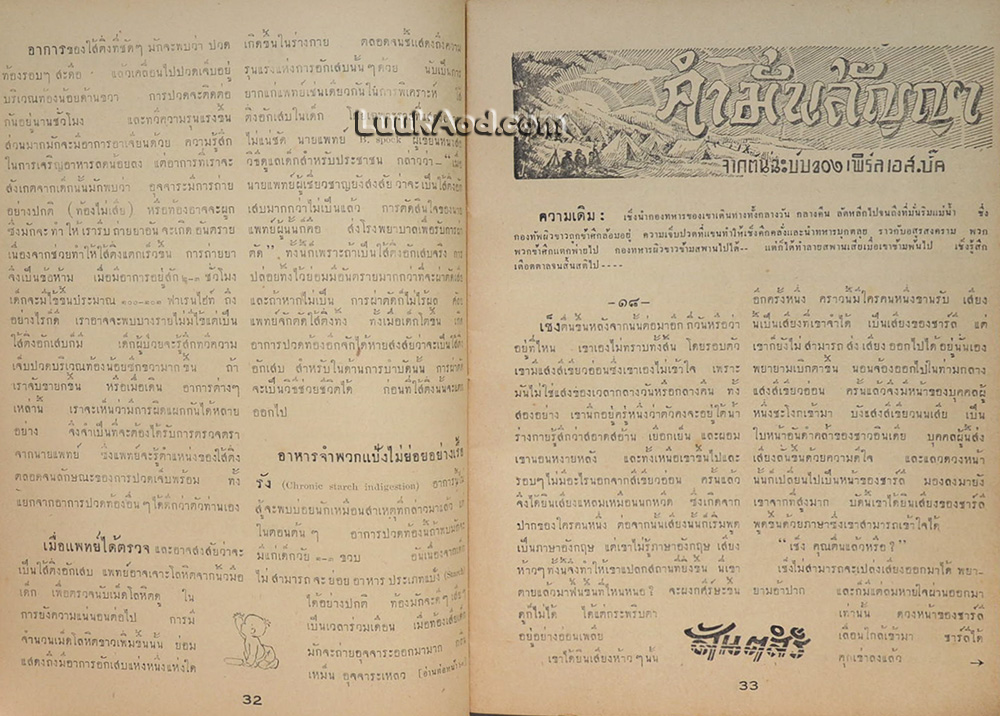 อาการของไส้ติ่งที่ชัดๆ มักจะพบว่า ปวด
ท้องรอบๆ สะดือ แล้วเคลื่อนไปปวดเจ็บอยู่
บริเวณท้องน้อยด้านขวา การปวดจะติดต่อ
กันอยู่นานชั่วโมง และทวีความรุนแรงขึ้น
ส่วนมากมักจะมีอาการอาเจียนด้วย ความรู้สึก
ในการเจริญอาหารลดน้อยลง แต่อาการที่เราจะ
สังเกตจากเด็กนั้นมักพบว่า อุจจาระมีการถ่าย
อย่างปกติ (ท้องไม่เสีย) หรือท้องอาจจะผูก
ซึ่งมักจะทำให้เรารับถ่ายยาอันจะเกิดอันตราย
เนื่องจากช่วยทำให้ไส้ติ่งแตกเร็วขึ้น การถ่ายยา
จึงเป็นข้อห้าม เมื่อมีอาการอยู่สัก ๒-๓ ชั่วโมง
เด็กจะมีไข้ขึ้นประมาณ ๑๐๐-๑๐๑ ฟาเรนไฮท์ ถึง
อย่างไรก็ดี เราอาจจะพบบางรายไม่มีไข้แต่เป็น
ไส้ติ่งอักเสบก็มี เด็กผู้ป่วยจะรู้สึกทวีความ
เจ็บปวดบริเวณท้องน้อยซีกขวามากขึ้น ถ้า
เราจับขายกขึ้น หรือเมื่อเดิน อาการต่างๆ
เหล่านี้ เราจะเห็นว่ามีการผิดแผกกันได้หลาย
อย่าง จึงจำเป็นที่จะต้องได้รับการตรวจตรา
จากนายแพทย์ ซึ่งแพทย์จะรู้ตำแหน่งของไส้ติ่ง
ตลอดจนลักษณะของการปวดเจ็บพร้อม ทั้ง
แยกจากอาการปวดท้องอื่นๆ ได้ดีกว่าตัวท่านเอง
เมื่อแพทย์ได้ตรวจ และอาจสงสัยว่าจะ
เป็นไส้ติ่งอักเสบ แพทย์อาจเจาะโลหิตจากนิ้วมือ
เด็ก เพื่อตรวจนับเม็ดโลหิตดู ใน
การยังความแน่นอนต่อไป การมี
จำนวนเม็ดโลหิตขาวเพิ่มขึ้นนั้น ย่อม
แสดงถึงมีอาการอักเสบแห่งหนึ่งแห่งใด
เกิดขึ้นในร่างกาย ตลอดจนชี้แสดงถึงความ
รุนแรงแห่งการอักเสบนั้นๆ ด้วย นับเป็นการ
ยากแก่แพทย์เช่นเดียวกันในการวิเคราะห์
ติ่งอักเสบในเด็ก
ไม่แน่ชัด นายแพทย์ B. Spock ผู้เขียนหนังสือ
วิธีดูแลเด็กสำหรับประชาชน กล่าวว่า-"เมื่อ
นายแพทย์ผู้เชี่ยวชาญยังสงสัยว่าจะเป็นไส้ติ่งอัก
เสบมากกว่าไม่เป็นแล้ว การตัดสินใจของนาย
แพทย์ผู้นั้นก็คือ ส่งโรงพยาบาลเพื่อรับการผ่า
ตัด" ทั้งนี้ก็เพราะถ้าเป็นไส้ติ่งอักเสบจริง การ
ปล่อยทิ้งไว้ย่อมมีอันตรายมากกว่าที่จะผ่าตัดเสีย
และถ้าหากก็ไม่เป็น การผ่าตัดก็ไม่ไร้ผล
แพทย์จักตัดไส้ติ่งทิ้ง ทั้งเมื่อเด็กโตขึ้น
อาการปวดท้องอีกจักได้หายสงสัยว่าจะเป็นไส้ติ่ง
อักเสบ สำหรับในด้านการบำบัดนั้น การผ่าตัด
จะเป็นวิธีช่วยชีวิตได้ ก่อนที่ไส้ติ่งนั้นจะแตก
ออกไป
อาหารจำพวกแป้งไม่ย่อยอย่างเรื้อ
รัง (Chronic starch indigestion)
ลูจะพบบ่อยนักเหมือนสาเหตุที่กล่าวมาแล้ว
ในตอนต้นๆ อาการปวดท้องนี้ถ้าพบมักจะ
มีแก่เด็กวัย ๑-๓ ขวบ อันเนื่องจากเด็ก
ไม่สามารถจะย่อยอาหารประเภทแป้ง (Starch)
ได้อย่างปกติ ท้องมักจะดีๆ เสียๆ
เป็นเวลาร่วมเดือน เมื่อท้องเสียเด็ก
มักจะถ่ายอุจจาระออกมามาก
เหม็น อุจจาระเหลว (อ่านต่อหน้า
32
LuukAod.com
คำมั่นสัญญา
จากต้นฉะบับของ เพิร์ล เอส. บั๊ค
ความเดิม : เซ็งนำกองทหารของเขาเดินทางทั้งกลางวัน กลางคืน ลัดหลีกไปจนถึงที่มั่นริมแม่น้ำ ซึ่ง
กองทัพผิวขาวถูกข้าศึกล้อมอยู่ ความเจ็บปวดที่แขนทำให้เซ็งคึดคลั่งและนำทหารบุกตลุย ราวกับอสูรสงคราม พวก
พวกข้าศึกแตกพ่ายไป กองทหารผิวขาวข้ามสพานไปได้-- แต่ก็ได้ทำลายสพานเสียเมื่อเขาข้ามพ้นไป เซ็งรู้สึก
เดือดดาลจนสิ้นสติไป----
-๑๘-
เซ็งตื่นขึ้นหลังจากนั้นต่อมาอีกกี่วันหรือว่า
อยู่ที่ไหน เขาเองไม่ทราบทั้งสิ้น โดยรอบตัว
เขามีแสงสีเขียวอ่อนซึ่งเขาเองไม่เข้าใจ เพราะ
มันไม่ใช่แสงของเวลากลางวันหรือกลางคืน ทั้ง
สองอย่าง เขานึกอยู่ครู่หนึ่งว่าตัวคงจะอยู่ใต้น้ำ
ร่างกายรู้สึกว่าสอาดสอ้าน เยือกเย็น และผอม
เขานอนหงายหลัง และทั้งเหนือเขาขึ้นไปและ
รอบๆ ไม่มีอะไรนอกจากสีเขียวอ่อน ครั้นแล้ว
จึงได้ยินเสียงแหลมเหมือนนกหวีด ซึ่งเกิดจาก
ปากของใครคนหนึ่ง ต่อจากนั้นเสียงนั้นก็เริ่มพูด
เป็นภาษาอังกฤษ แต่เขาไม่รู้ภาษาอังกฤษ เสียง
ห้าวๆ ทั้งนี้จึงทำให้เขาแปลกสถานที่ยิ่งขึ้น นี่เขา
ตายแล้วมาฟื้นขึ้นที่ไหนหนอ? จะผงกศีรษะขึ้น
ดูก็ไม่ได้ ได้แต่กระพริบตา
อยู่อย่างอ่อนเพลีย
เขาได้ยินเสียงห้าวๆ นั้น
อีกครั้งหนึ่ง คราวนี้มีใครคนหนึ่งขานรับ เสียง
นั้นเป็นเสียงที่เขาจำได้ เป็นเสียงของชาร์ลี แต่
เขาก็ยังไม่สามารถส่งเสียงออกไปได้ อยู่นั่นเอง
พยายามเบิกตาขึ้น นอนจ้องออกไปในท่ามกลาง
แสงสีเขียวอ่อน ครั้นแล้วจึงมีหน้าของบุคคลผู้
หนึ่งชะโงกเข้ามา บังแสงสีเขียวนั้นเสีย เป็น
ใบหน้าอันดำคล้ำของชาวอินเดีย บุคคลผู้นั้นส่ง
เสียงลั่นขึ้นด้วยความดีใจ และแล้วดวงหน้า
นั้นก็เปลี่ยนไปเป็นหน้าของชาร์ลี มองลงมายัง
เขาจากที่สูงมาก บัดนี้เขาได้ยินเสียงของชาร์ลี
พูดขึ้นด้วยภาษาซึ่งเขาสามารถเข้าใจได้
"เซ็ง คุณตื่นแล้วหรือ?"
เซ็งไม่สามารถจะเปล่งเสียงออกมาได้ พยา-
ยามอ้าปาก และก็มีแต่ลมหายใจผ่านออกมา
เท่านั้น ดวงหน้าของชาร์ลี
เลื่อนใกล้เข้ามา ชาร์ลีได้
คุกเข่าลงแล้ว
สันตสิริ
→
33